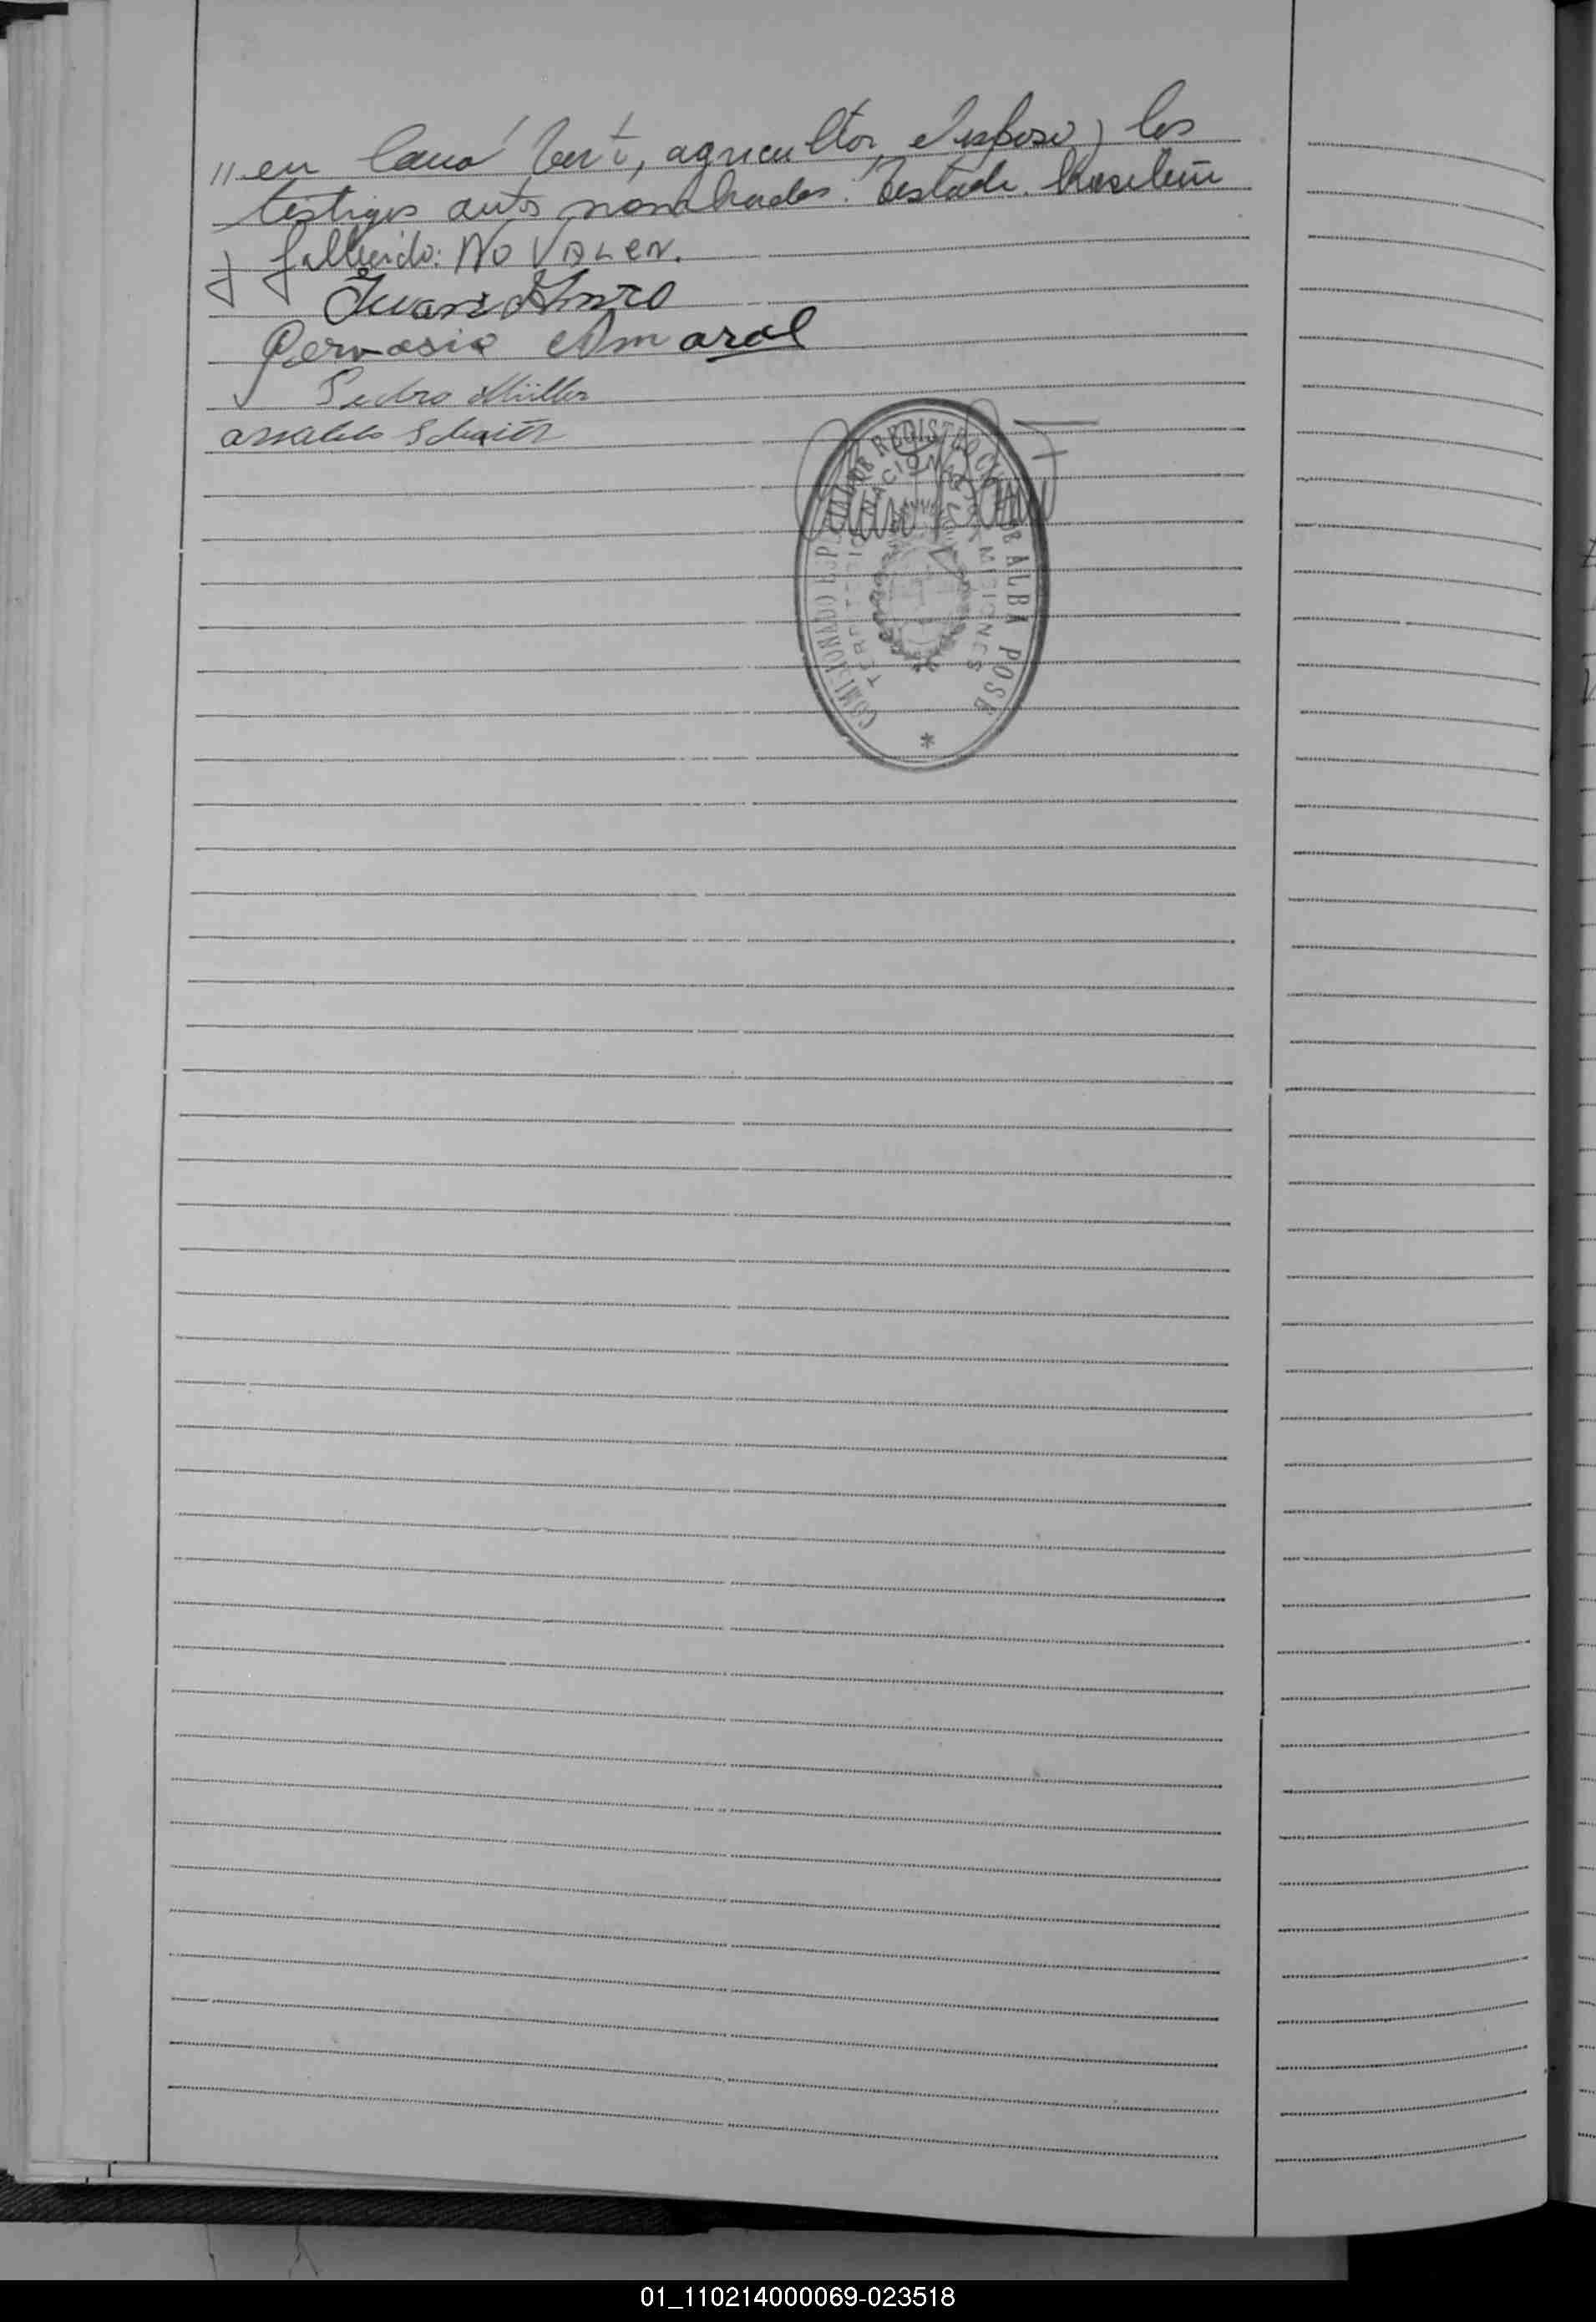 "en Canó Vertí, agricultor, el esposo y los
testigos antes nombrados. Testado: brasileña
y fallecido: No VALEN.
Juan Amaro
Gervasio Amaral
Pedro Müller
Arnaldo
COMISIONADO ESPECIAL DE REGISTRO CIVIL DE ALBA POSE
TERRITORIO NACIONAL DE MISIONES
01_110214000069-023518